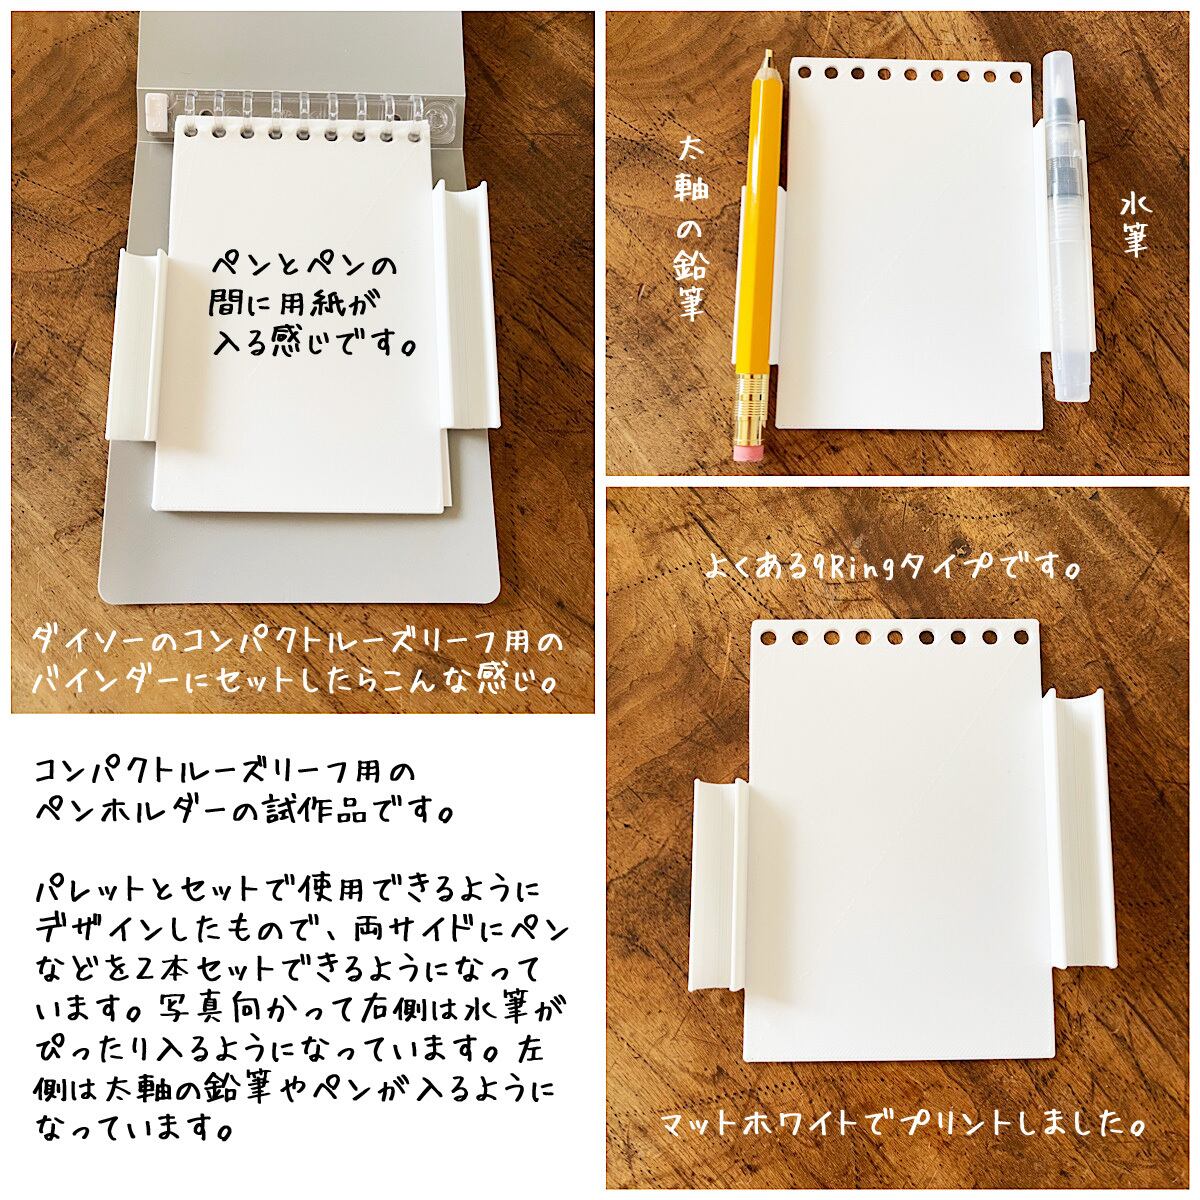 ペンとペンの
間に用紙が
入る感じです。
ダイソーのコンパクトルーズリーフ用の
バインダーにセットしたらこんな感じ。
太軸の鉛筆
水筆
よくある9Ringタイプです。
マットホワイトでプリントしました。
コンパクトルーズリーフ用の
ペンホルダーの試作品です。
パレットとセットで使用できるように
デザインしたもので、両サイドにペン
などを2本セットできるようになって
います。写真向かって右側は水筆が
ぴったり入るようになっています。左
側は太軸の鉛筆やペンが入るように
なっています。